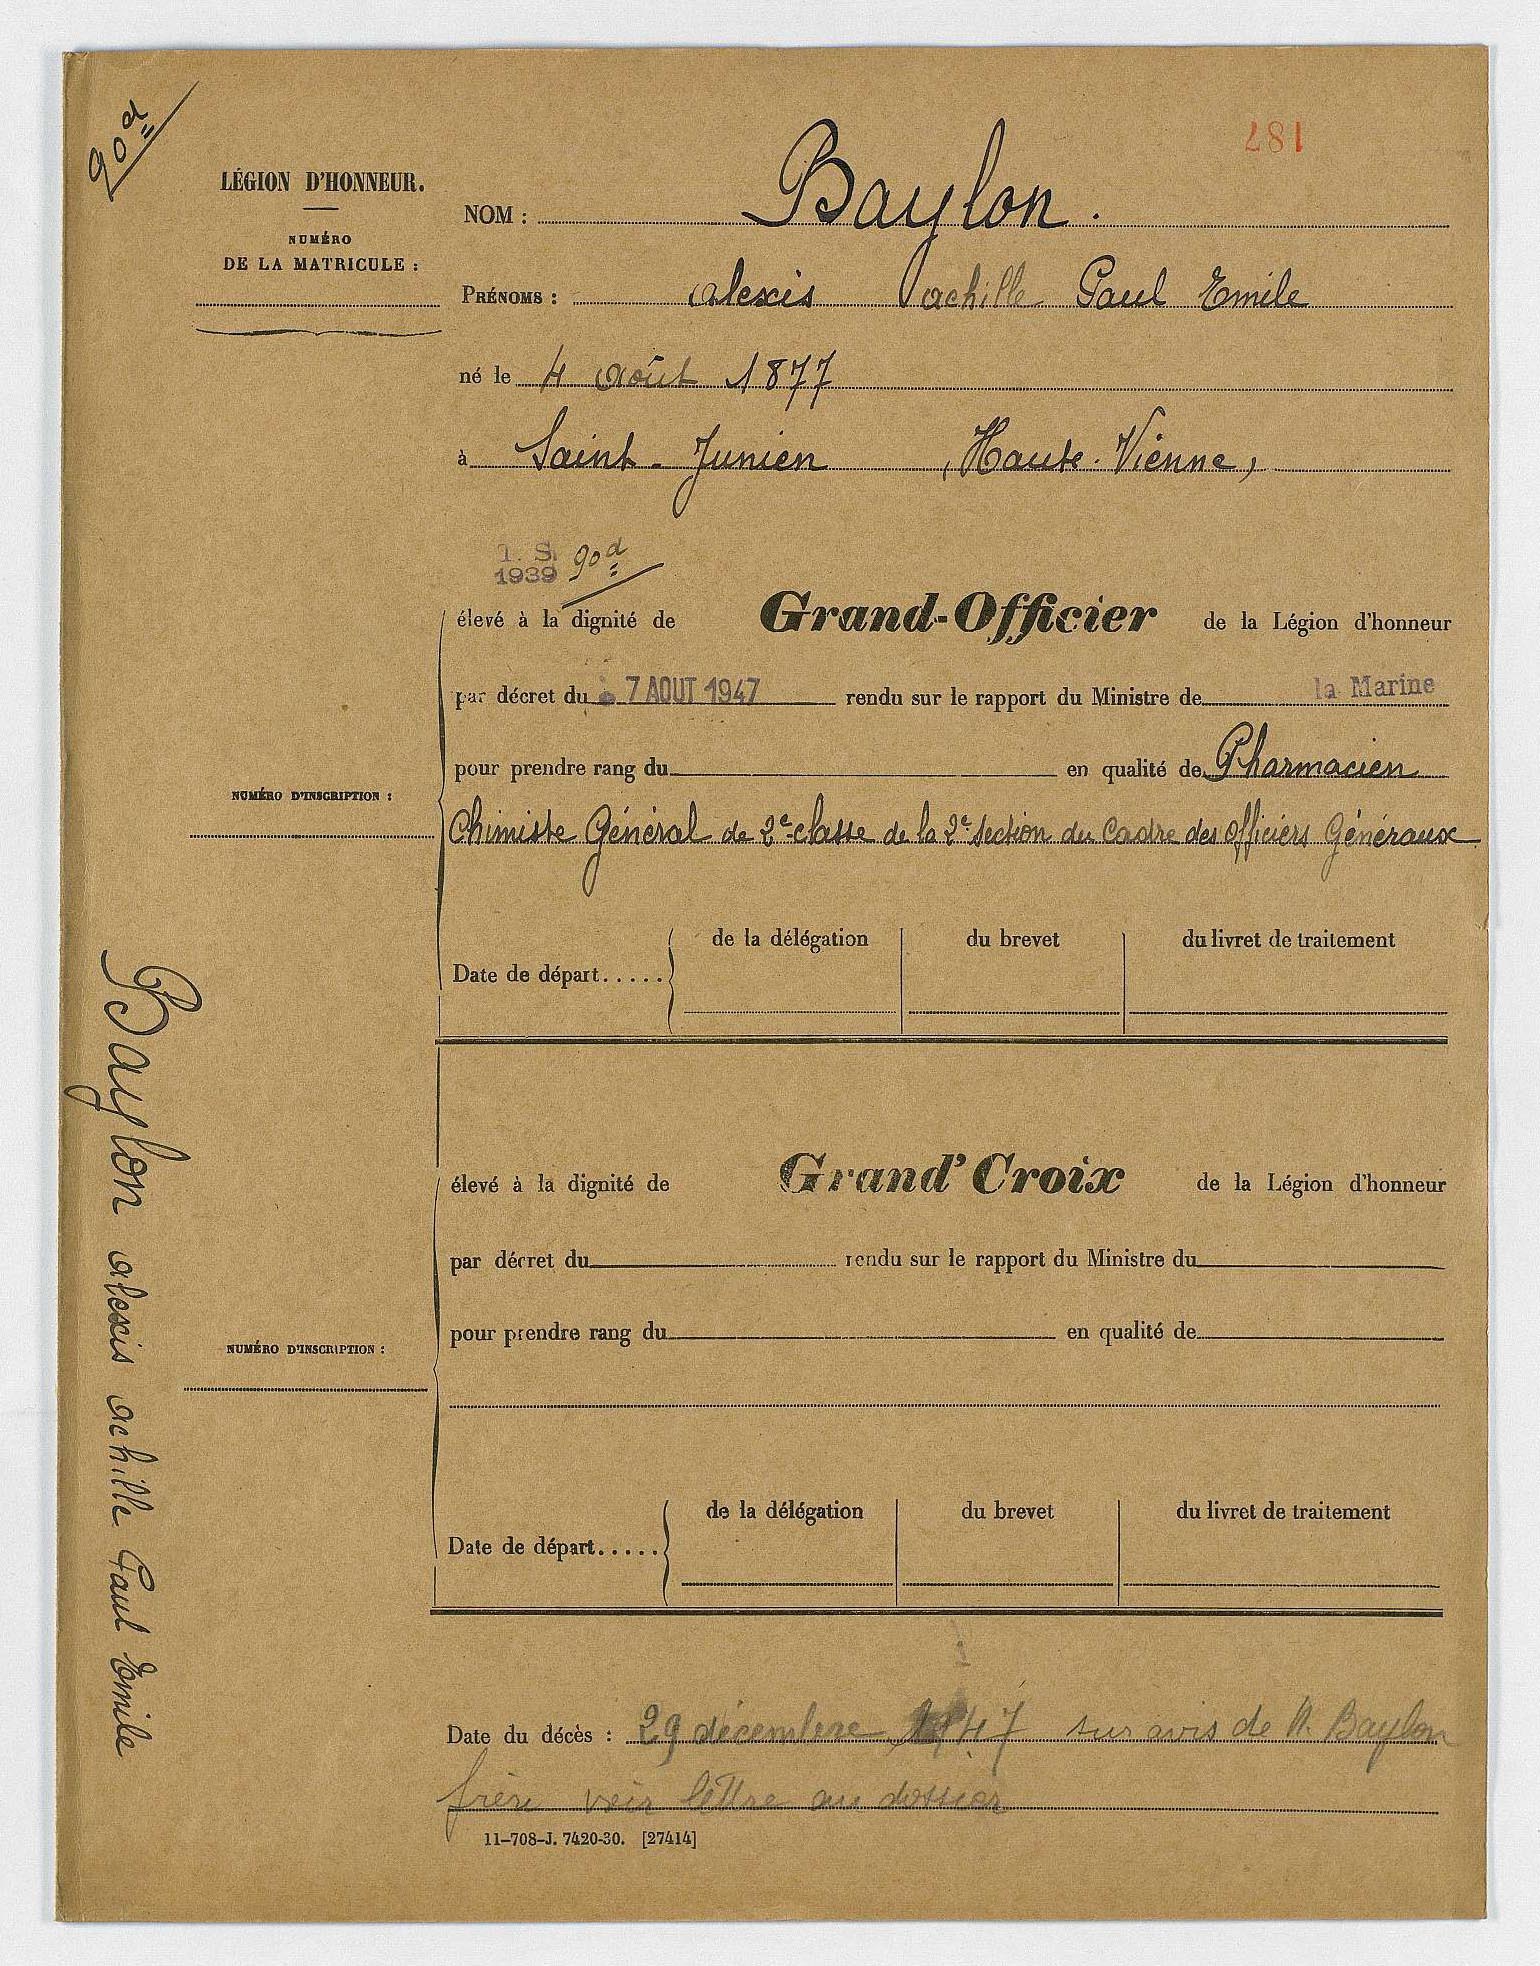 90d
187
LÉGION D'HONNEUR.
NUMÉRO
DE LA MATRICULE :
NOM : Baylon.
PRÉNOMS : Alexis Achille Paul Emile
né le 4 Août 1877
à Saint-Junien (Haute-Vienne)
T. S.
1939 90d
élevé à la dignité de Grand-Officier de la Légion d'honneur
par décret du 7 AOUT 1947 rendu sur le rapport du Ministre de la Marine
pour prendre rang du en qualité de Pharmacien
Chimiste Général de 2e classe de la 2e Section du Cadre des Officiers Généraux
NUMÉRO D'INSCRIPTION :
de la délégation du brevet du livret de traitement
Date de départ.....
élevé à la dignité de Grand'Croix de la Légion d'honneur
par décret du rendu sur le rapport du Ministre du
pour prendre rang du en qualité de
NUMÉRO D'INSCRIPTION :
de la délégation du brevet du livret de traitement
Date de départ.....
Date du décès : 29 décembre 1947 sur avis de M. Baylon
frère voir lettre au dossier
11-708-J. 7420-30. [27414]
Baylon Alexis Achille Paul Emile